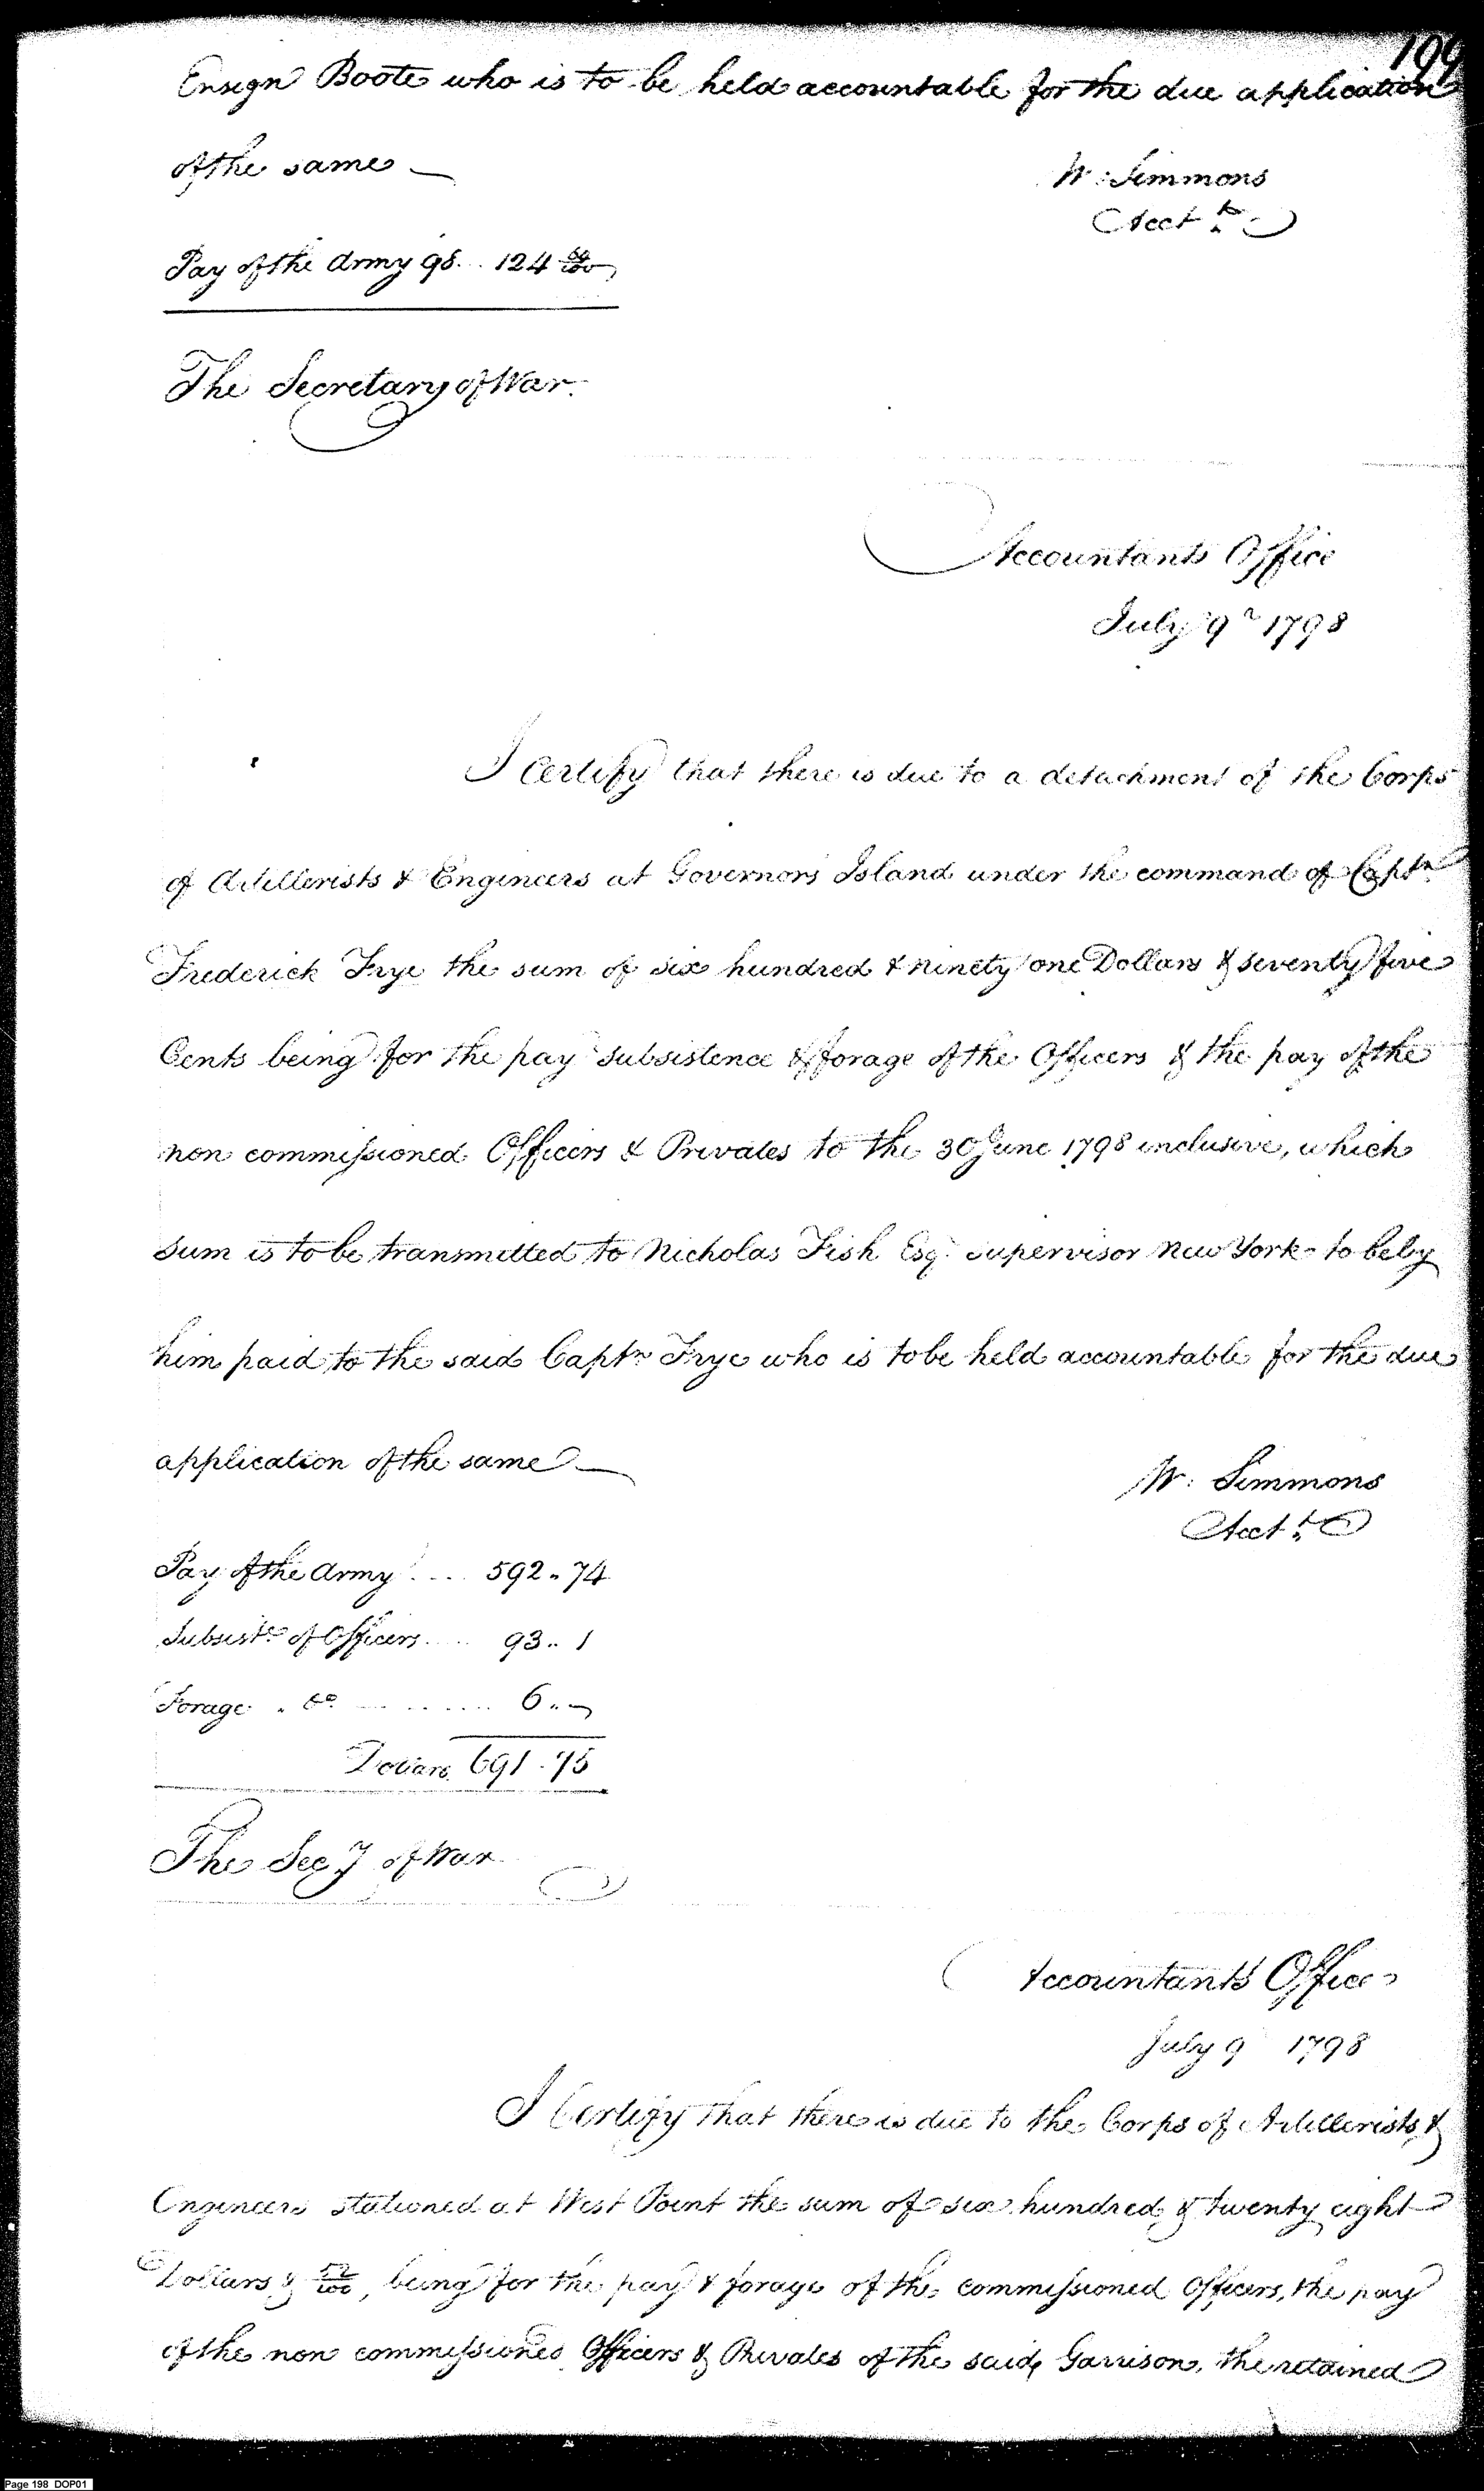 199
Ensign Boote who is to be held accountable for the due application
of the same —
W: Simmons
Acct.t
Pay of the Army 98... 124
The Secretary of War.
Accountants Office
July 9th 1798
I Certify that there is due to a detachment of the Corps
of Artillerists & Engineers at Governors Island under the command of Captn
Frederick Frye the sum of six hundred & ninety one Dollars & seventy five
Cents being for the pay subsistence & forage of the Officers & the pay of the
non commissioned Officers & Privates to the 30 June 1798 inclusive, which
sum is to be transmitted to Nicholas Fish Esqr. Supervisor New York - to be by
him paid to the said Captn Frye who is to be held accountable for the due
application of the same —
W: Simmons
Acct.t
Pay of the Army .... 592.74
Subsistce of Officers .... 93..1
Forage . do ........ 6..—
Dollars 691.75
The Secy of War
Accountants Office
July 9 1798
I Certify that there is due to the Corps of Artillerists &
Engineers stationed at West Point the sum of six hundred & twenty eight
Dollars & 52/100, being for the pay & forage of the commissioned Officers, the pay
of the non commissioned Officers & Privates of the said Garrison, the retained
Page 198 DOP01